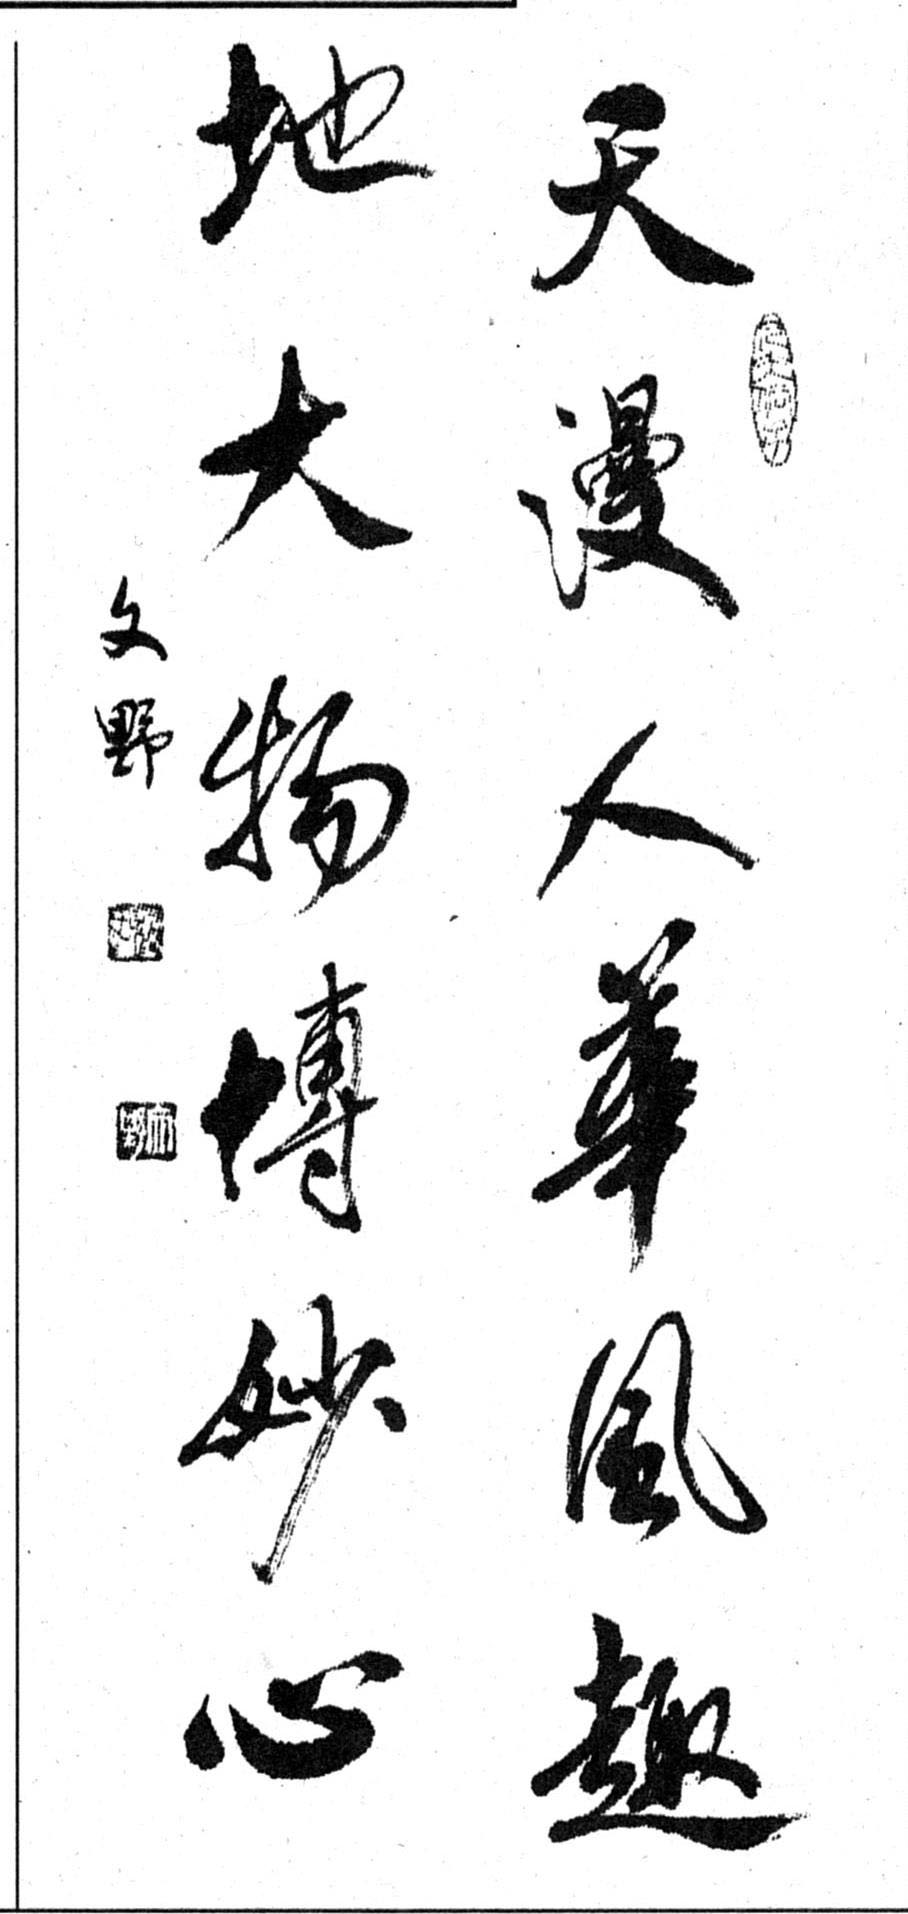 天漫人華風趣
地大物博妙心
文野